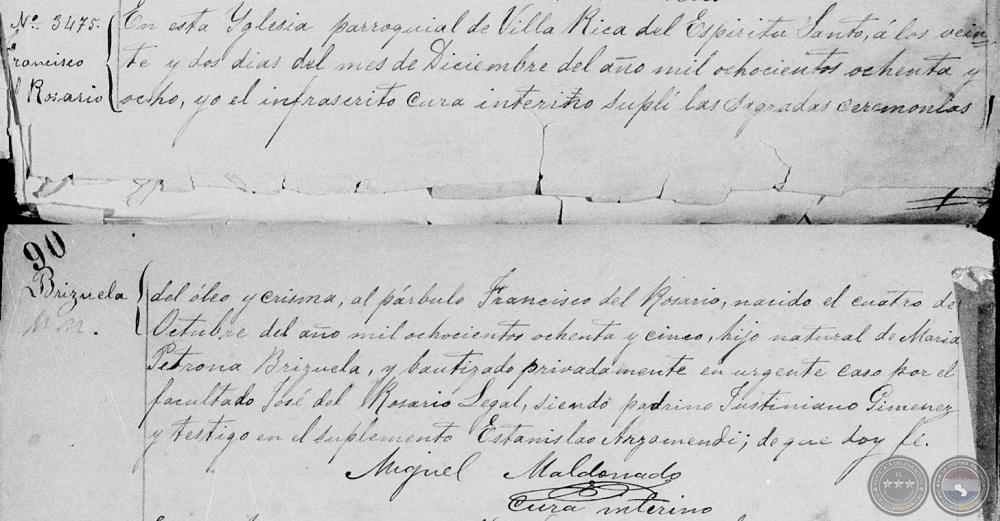 Nº. 3475. En esta Yglesia parroquial de Villa Rica del Espiritu Santo, á los vein-
Francisco te y dos dias del mes de Diciembre del año mil ochocientos ochenta y
l Rosario ocho, yo el infrascrito cura interino suplí las sagradas ceremonias
90
Brizuela del óleo y crisma, al párbulo Francisco del Rosario, nacido el cuatro de
Octubre del año mil ochocientos ochenta y cinco, hijo natural de Maria
Petrona Brizuela, y bautizado privadamente en urgente caso por el
facultado José del Rosario Legal, siendo padrino Justiniano Gimenez
y testigo en el suplemento Estanislao Arzamendi; de que doy fé.
Miguel Maldonado
cura interino